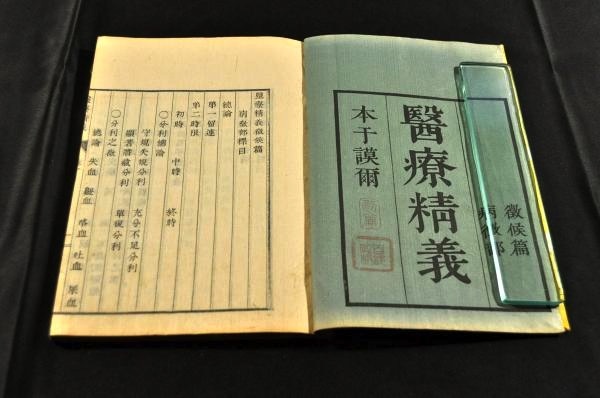 徵候篇
病徵部
醫療精義
本干謨爾
醫療精義徵候篇
病徵部標目
總論
第一留連
第二時限
初時 中時 終時
○分利總論
守規失規分利 充分不足分利
顯著潛蔽分利 單複分利
○分利之徵
總論 失血 衄血 咯血 吐血 尿血